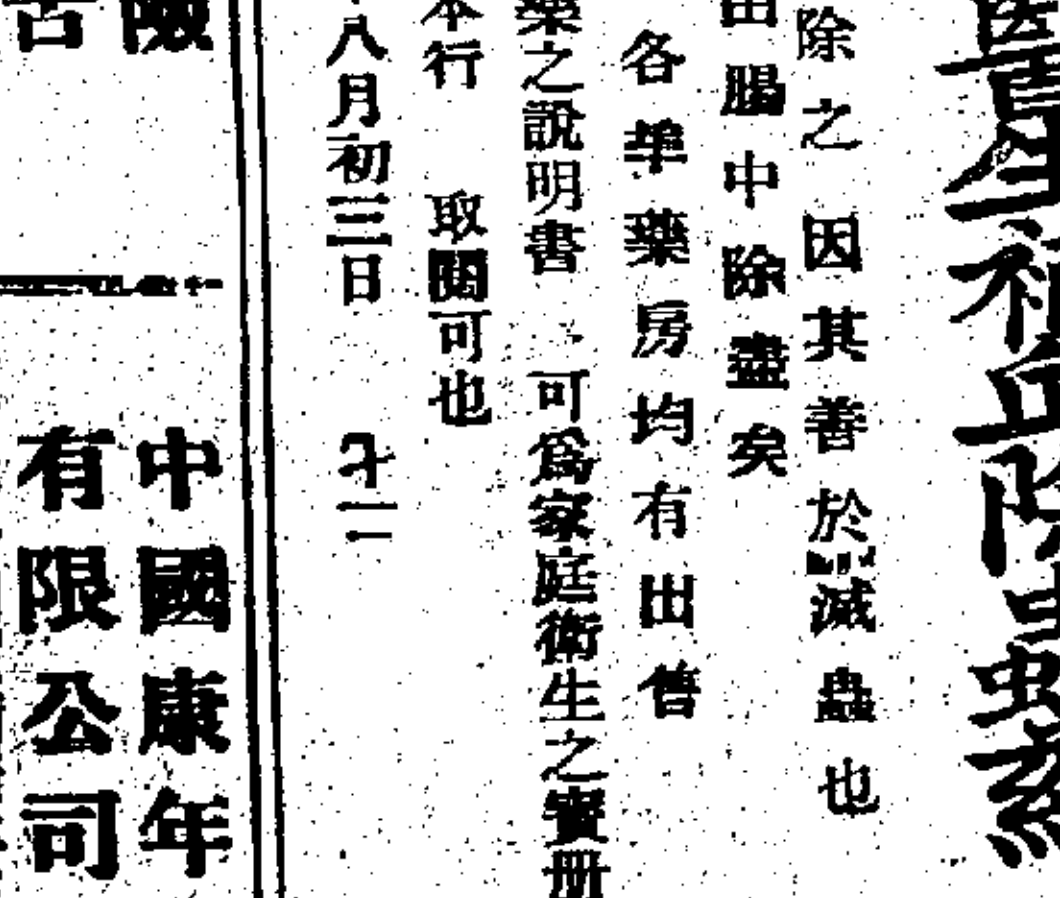 醫生補丘除蟲
除之因其善於滅蟲也
由腸中除盡矣
各埠藥房均有出售
藥之說明書可為家庭衛生之寶册
本行取閱可也
八月初三日
中國康年
有限公司